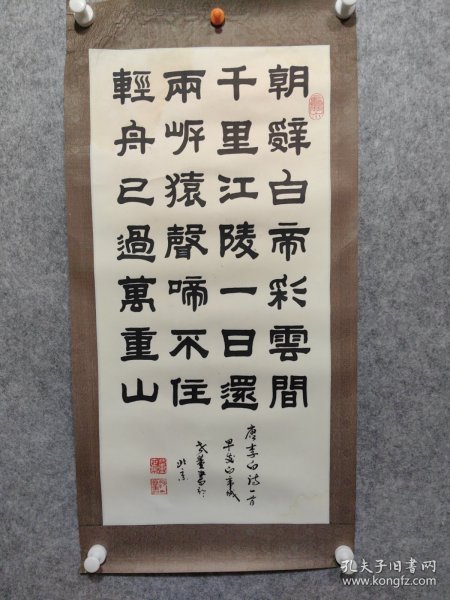 朝辤白帝彩雲間
千里江陵一日還
兩岍猿聲啼不住
輕舟已過萬重山
唐李白詩一首
早發白帝城
書於
北京
孔夫子旧书网
www.kongfz.com